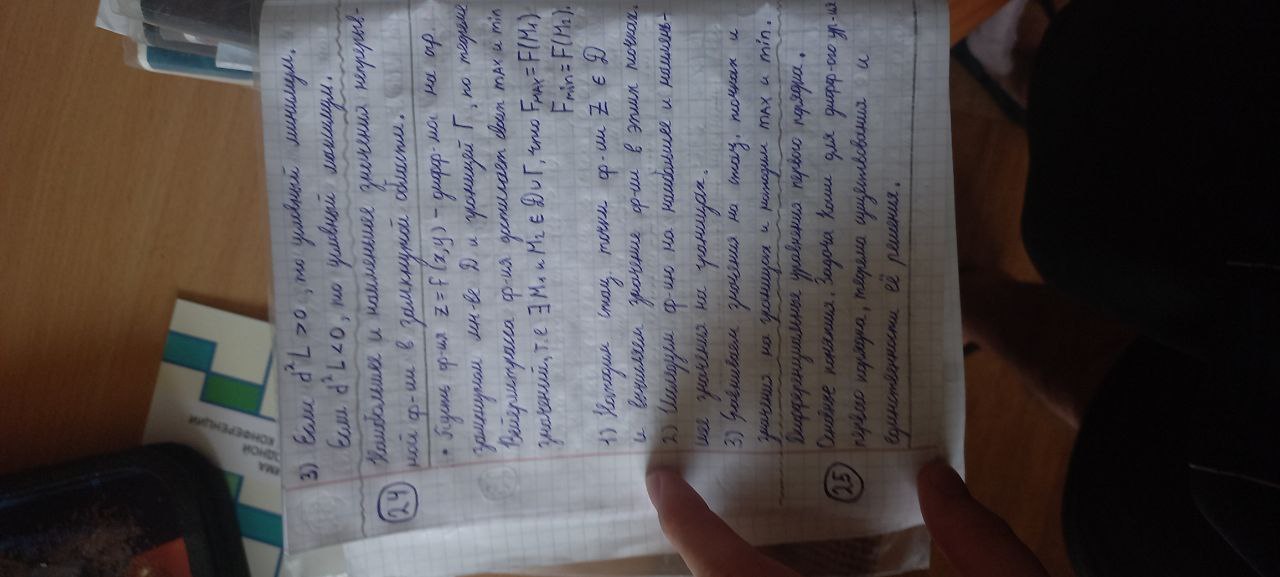 3) Если d²L > 0, то условный минимум.
Если d²L < 0, то условный максимум.
24
Наибольшее и наименьшее значения непрерыв-
ной ф-ии в замкнутой области.
• Пусть ф-ия z = F(x,y) – дифф-ма на огр.
замкнутом мн-ве D и границей Г, по теореме
Вейерштрасса ф-ия достигает своих max и min
значений, т.е ∃ M₁ и M₂ ∈ D ∪ Г, что Fmax = F(M₁)
Fmin = F(M₂).
1) Находим стац точки ф-ии Z ∈ D
и вычисляем значение ф-ии в этих точках.
2) Исследуем ф-ю на наибольшее и наимень-
шее значения на границах.
3) Сравниваем значения на стац. точках и
значения на границах и находим max и min.
25
Дифференциальные уравнения первого порядка.
Основные понятия. Задача Коши для дифф-го ур-ия
первого порядка, теорема существования и
единственности её решения.
КОНФЕРЕНЦИИ